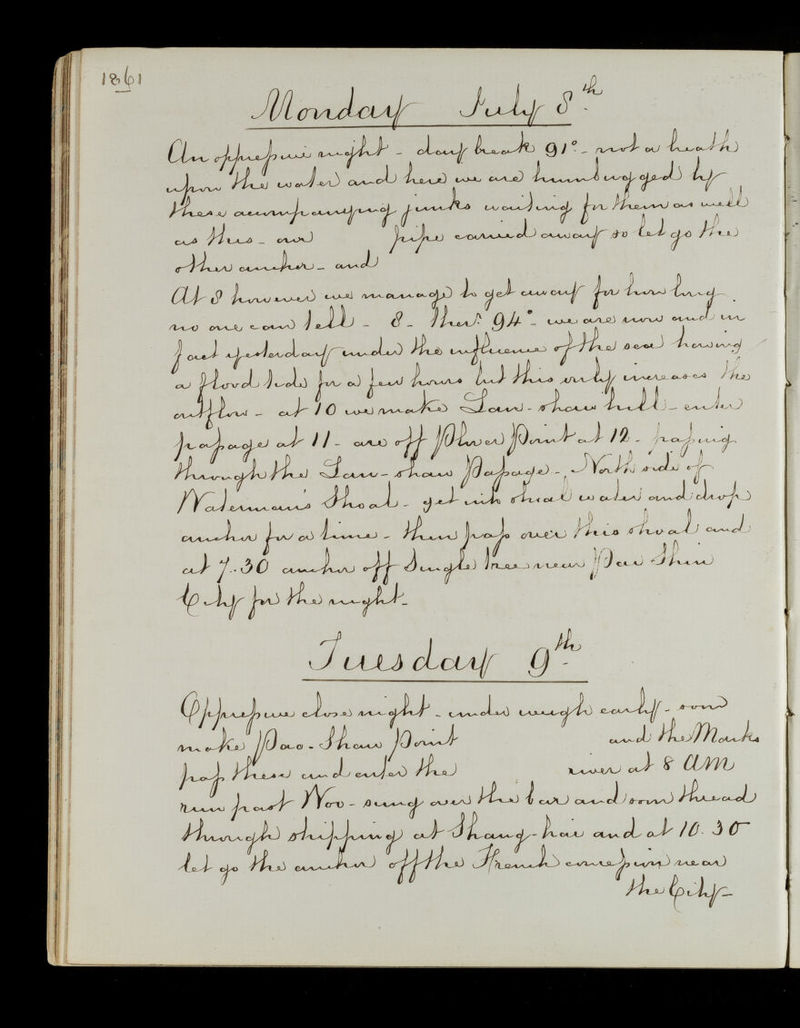 1861
Monday July 8th
An oppressive night - daybreak 91° - not a breath
upon the water and here we are humbugged by
these accompanying junks waiting for them as well
as this - our pipe carried away so let go the
other anchor - and
At 8 however we manage to get away for how long
no one can tell - 8 - Ther. 94° - we are now and in
fact yesterday under the influence of the sea having
a flood tide for a few hours but this only increases the
outflow - at 10 we make Lan-shan hill - enter
passage at 11 - are off Plover Point at 12 - passing
through the Lan-shan Passage - North side of
Waterman's Shoal - get into shoal water and drop
anchor for a time - then pass over this shoal and
at 7.30 anchor off Single tree near Pau Shin
City for the night -
Tuesday 9th
Oppressive close night - under weigh early - soon
make Pao-Shan Point and the Marks
pass these and enter the river at 8 AM
run past Woo-sung over the bar and soon thread
through shipping at Shang-hai and at 10.30
let go the anchor off the French concession near
the City -